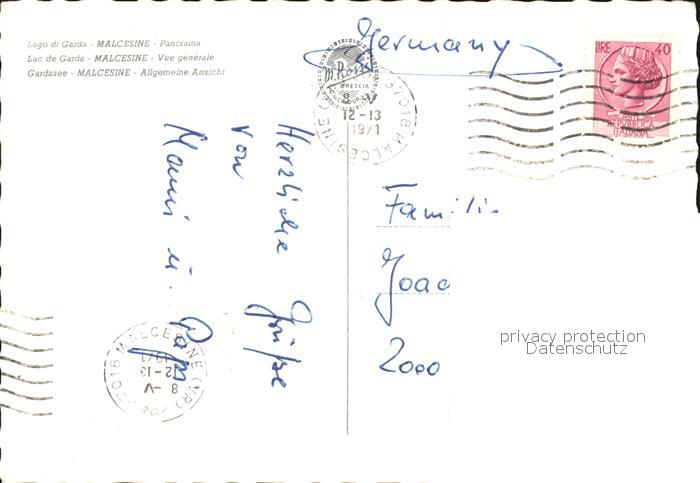 Lago di Garda - MALCESINE - Panorama
Lac de Garda - MALCESINE - Vue générale
Gardasee - MALCESINE - Allgemeine Ansicht
Germany
LIRE 40
REPUBBLICA
ITALIANA
BRESCIA
37018 MALCESINE
8 -V
12-13
1971
Herzliche Grüße
von
Mami u. Papi
Famili
Joac
2000
privacy protection
Datenschutz
37018 MALCESINE (VR)
8 -V
12-13
1971